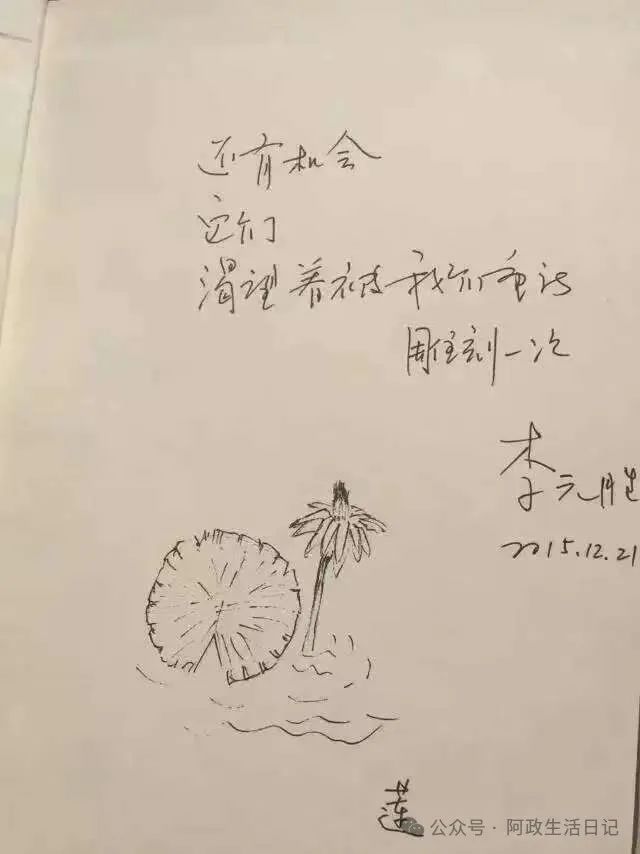 还有机会
它们
渴望着被我们重读
雕刻一次
李元胜
2015.12.21
莲
公众号·阿政生活日记